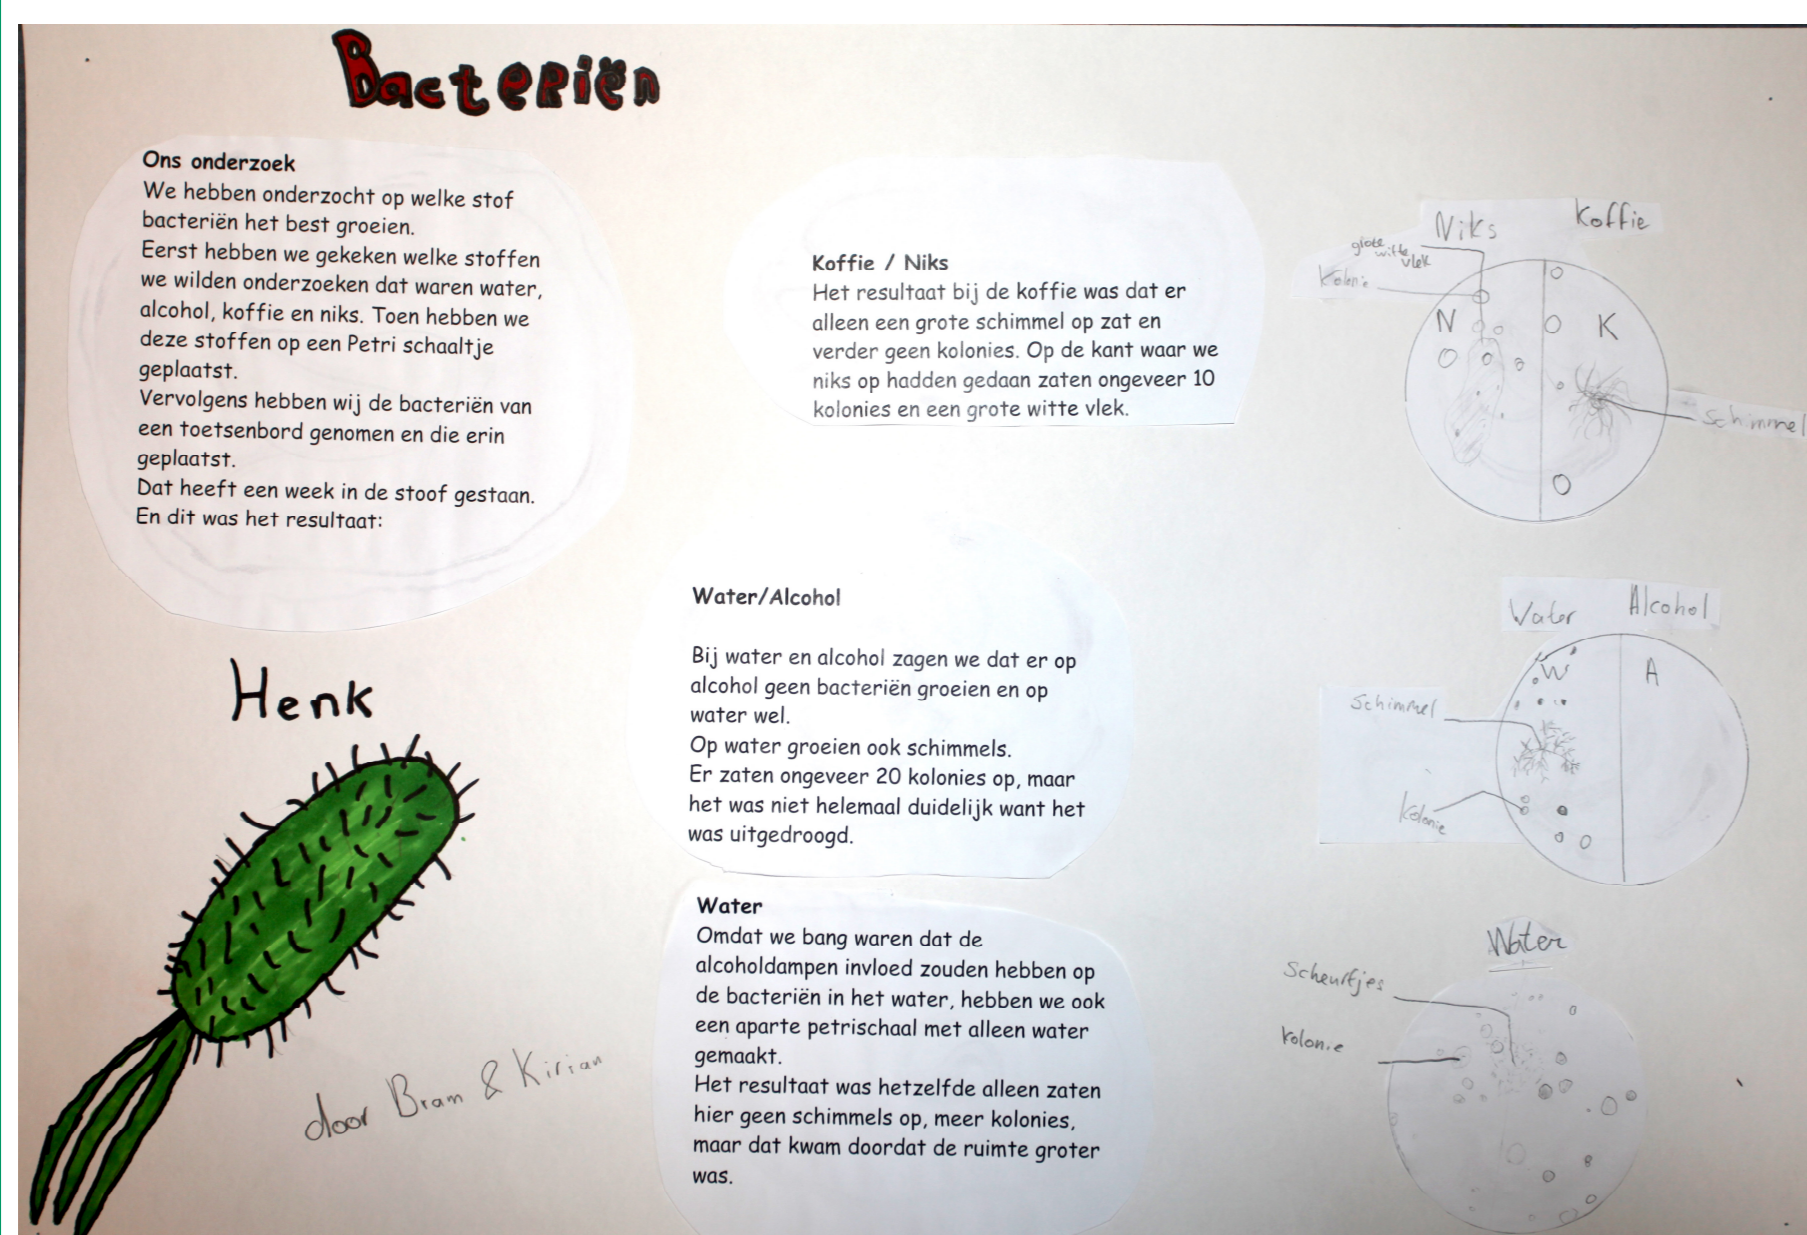 Bacteriën
Ons onderzoek
We hebben onderzocht op welke stof
bacteriën het best groeien.
Eerst hebben we gekeken welke stoffen
we wilden onderzoeken dat waren water,
alcohol, koffie en niks. Toen hebben we
deze stoffen op een Petri schaaltje
geplaatst.
Vervolgens hebben wij de bacteriën van
een toetsenbord genomen en die erin
geplaatst.
Dat heeft een week in de stoof gestaan.
En dit was het resultaat:
Henk
door Bram & Kirian
Koffie / Niks
Het resultaat bij de koffie was dat er
alleen een grote schimmel op zat en
verder geen kolonies. Op de kant waar we
niks op hadden gedaan zaten ongeveer 10
kolonies en een grote witte vlek.
Water/Alcohol
Bij water en alcohol zagen we dat er op
alcohol geen bacteriën groeien en op
water wel.
Op water groeien ook schimmels.
Er zaten ongeveer 20 kolonies op, maar
het was niet helemaal duidelijk want het
was uitgedroogd.
Water
Omdat we bang waren dat de
alcoholdampen invloed zouden hebben op
de bacteriën in het water, hebben we ook
een aparte petrischaal met alleen water
gemaakt.
Het resultaat was hetzelfde alleen zaten
hier geen schimmels op, meer kolonies,
maar dat kwam doordat de ruimte groter
was.
Niks Koffie
grote
witte
vlek
Kolonie
N K
Schimmel
Water Alcohol
W A
Schimmel
Kolonie
Water
Scheurtjes
Kolonie